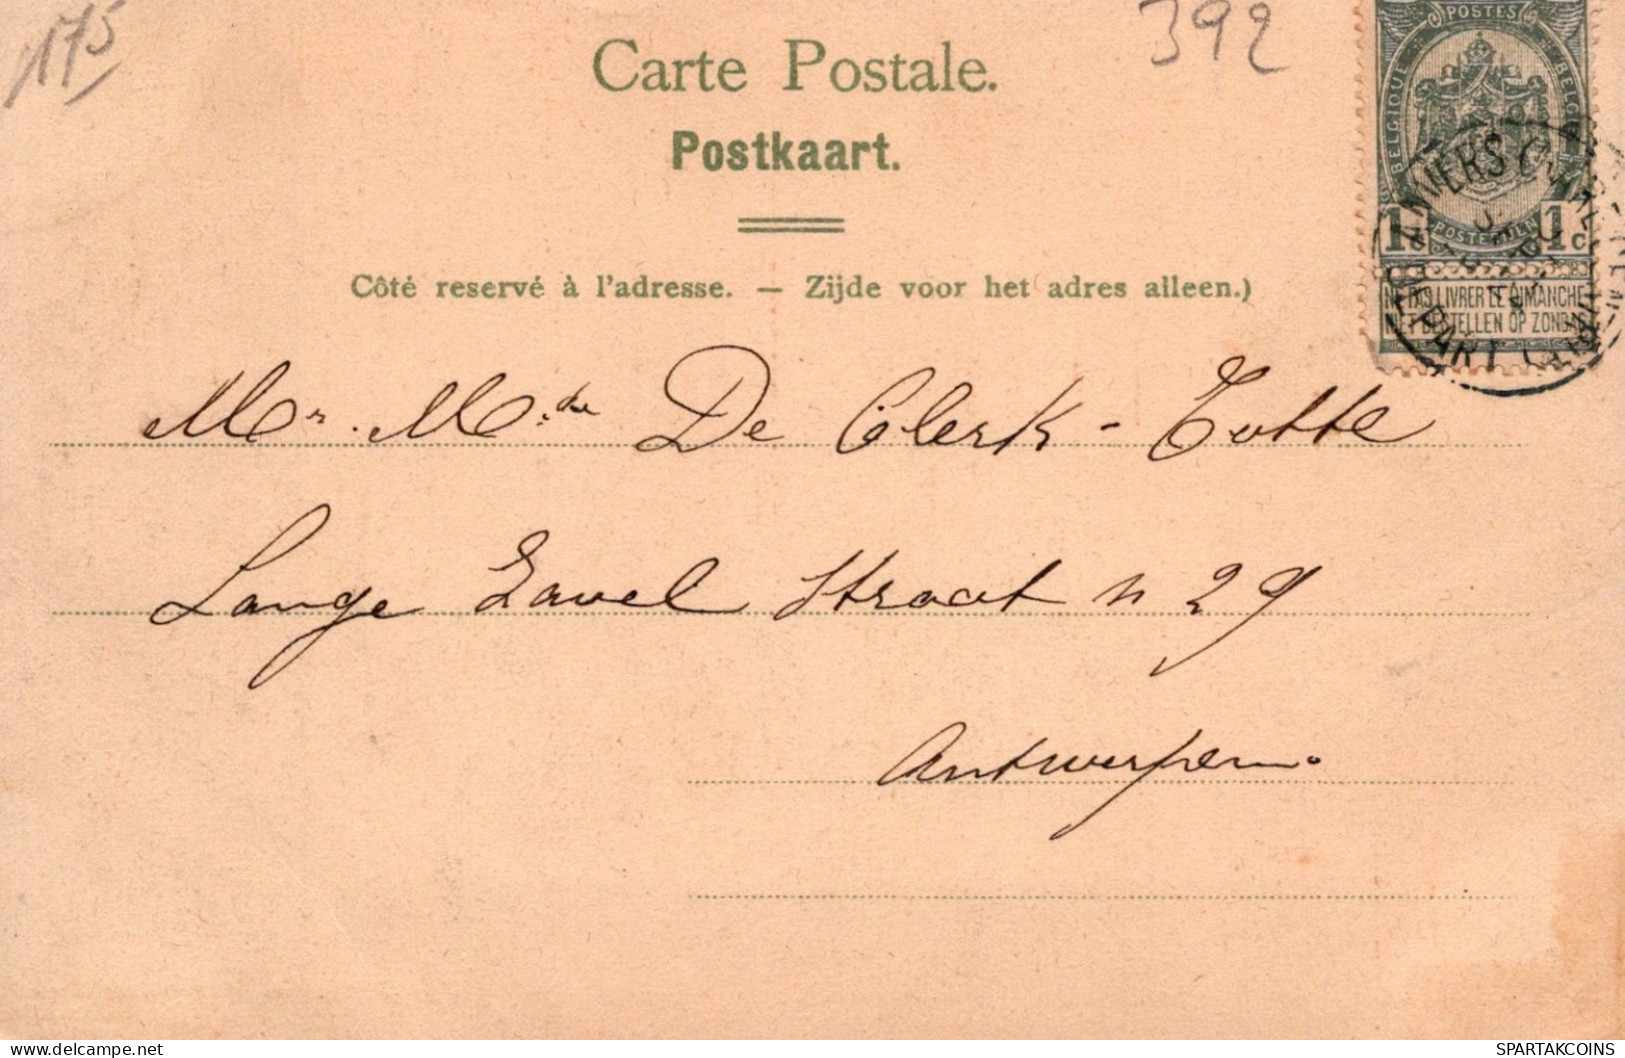 175
392
Carte Postale.
Postkaart.
Côté reservé à l'adresse. — Zijde voor het adres alleen.)
POSTES
BELGIQUE BELGIË
1c 1c
POSTERIJEN
NE PAS LIVRER LE DIMANCHE
NIET BESTELLEN OP ZONDAG
ANVERS
DEPART
Mr. Mde De Clerk - Totte
Lange Gavel Straat n 29
Antwerpen.
delcampe.net
SPARTAKCOINS